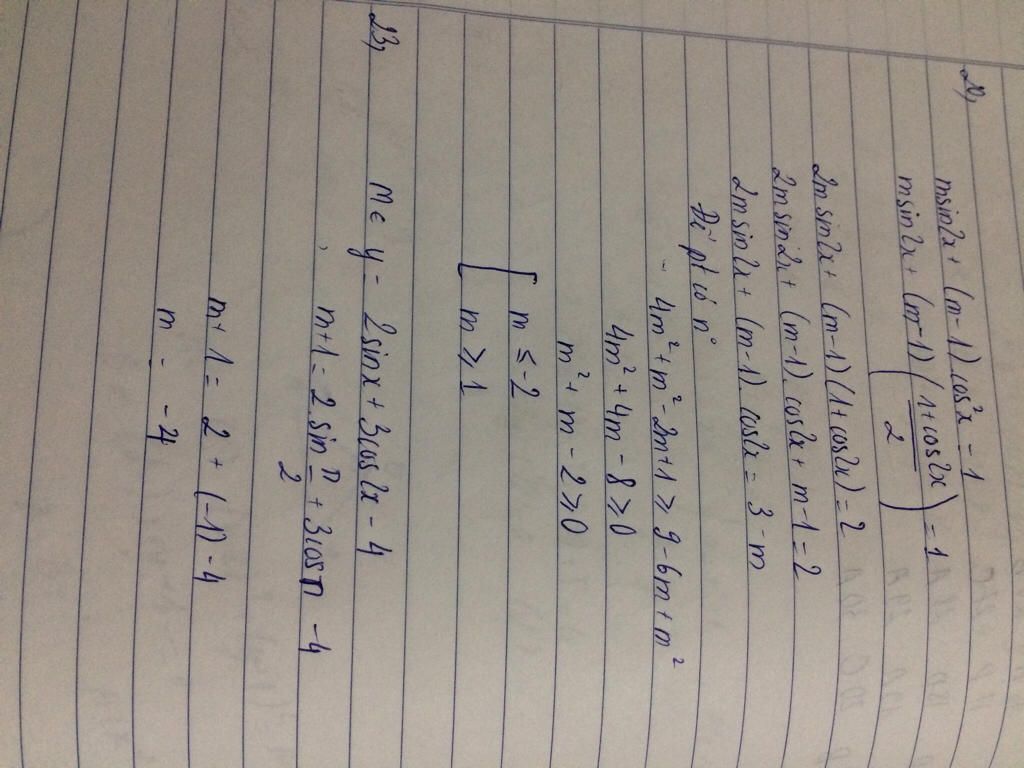 20,
msin2x + (m-1)cos²x = 1
msin2x + (m-1)(1+cos2x / 2) = 1
2msin2x + (m-1)(1+cos2x) = 2
2msin2x + (m-1)cos2x + m-1 = 2
2msin2x + (m-1)cos2x = 3-m
Để pt có n°
4m² + m² - 2m + 1 ≥ 9 - 6m + m²
4m² + 4m - 8 ≥ 0
m² + m - 2 ≥ 0
[ m ≤ -2
m ≥ 1
23, M ∈ y = 2sinx + 3cos2x - 4
m+1 = 2sin π/2 + 3cosπ - 4
m+1 = 2 + (-1) - 4
m = -4